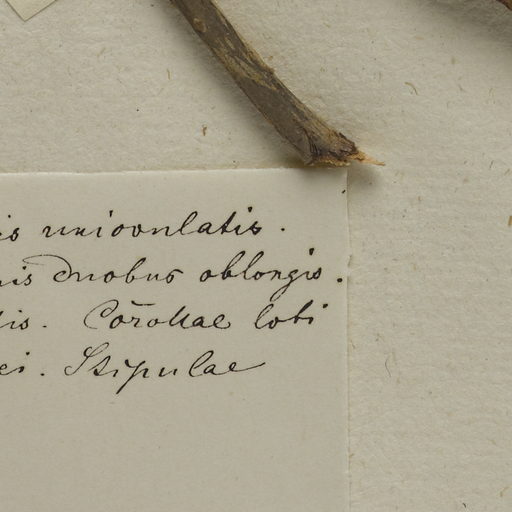 is uniovulatis.
is duobus oblongis.
is. Corollae lobi
ei. Stipulae